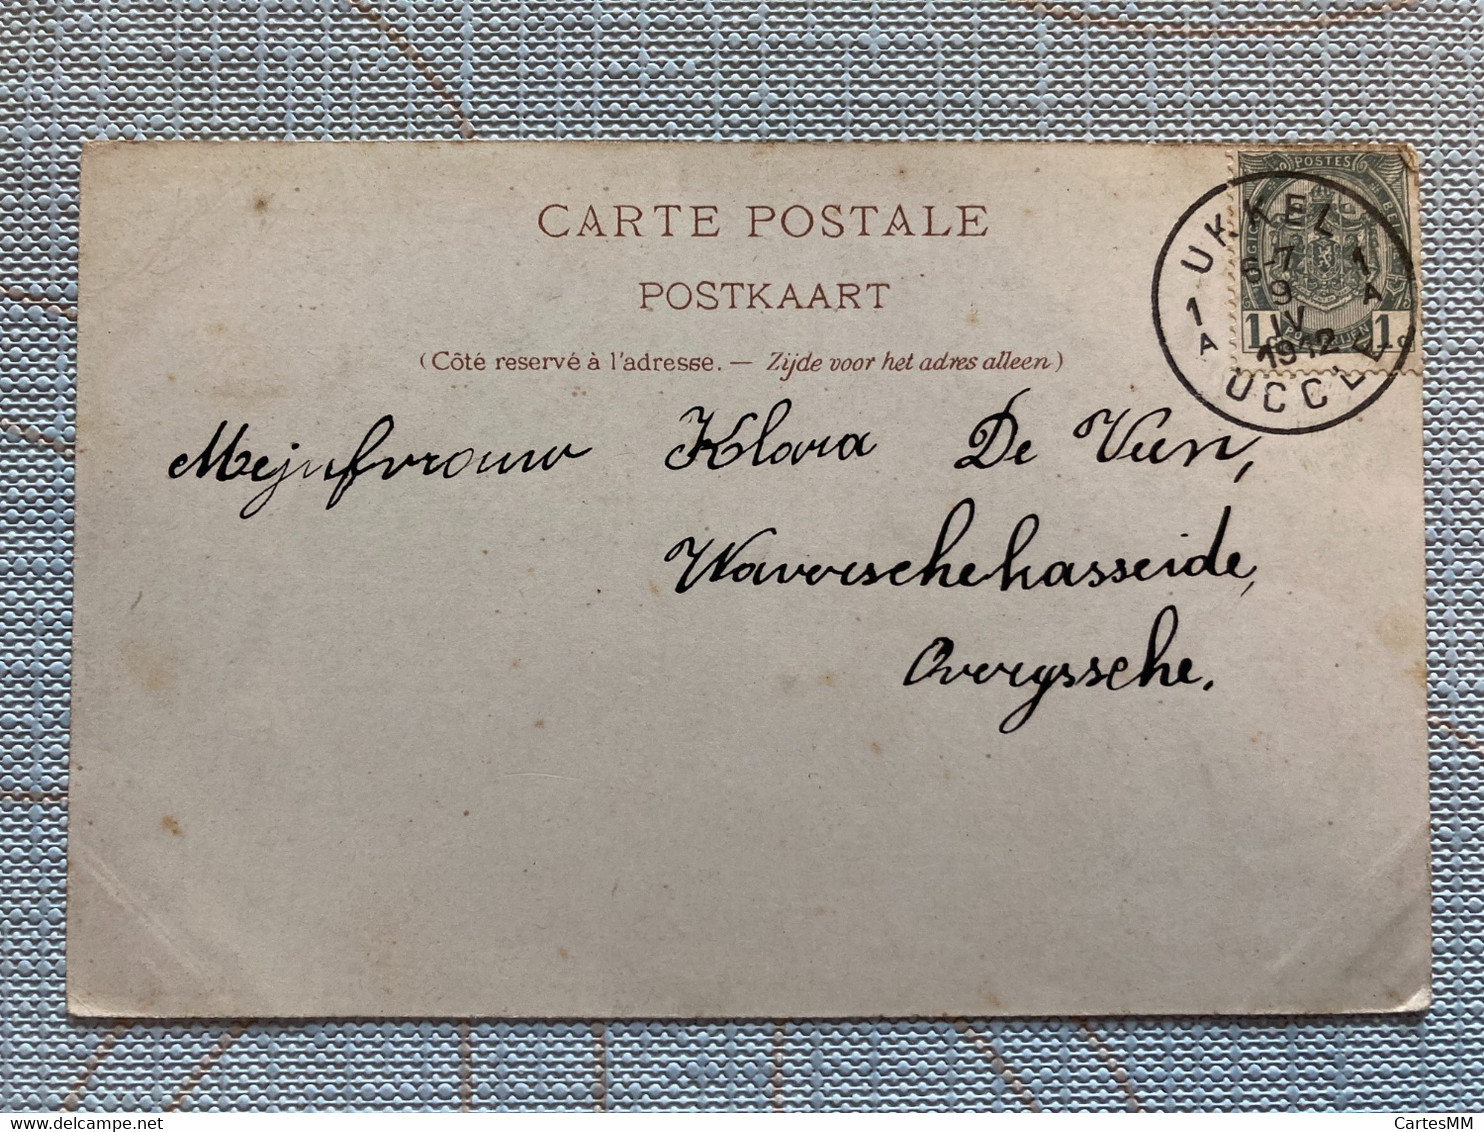 CARTE POSTALE
POSTKAART
(Côté reservé à l'adresse. — Zijde voor het adres alleen)
POSTES
1 POSTERIJEN 1 c
UKKEL 1 A
6-7
9
IV
1912
1 A UCCLE
Mejufvrouw Klara De Veen,
Waverschehasseide,
Overyssche.
CartesMM